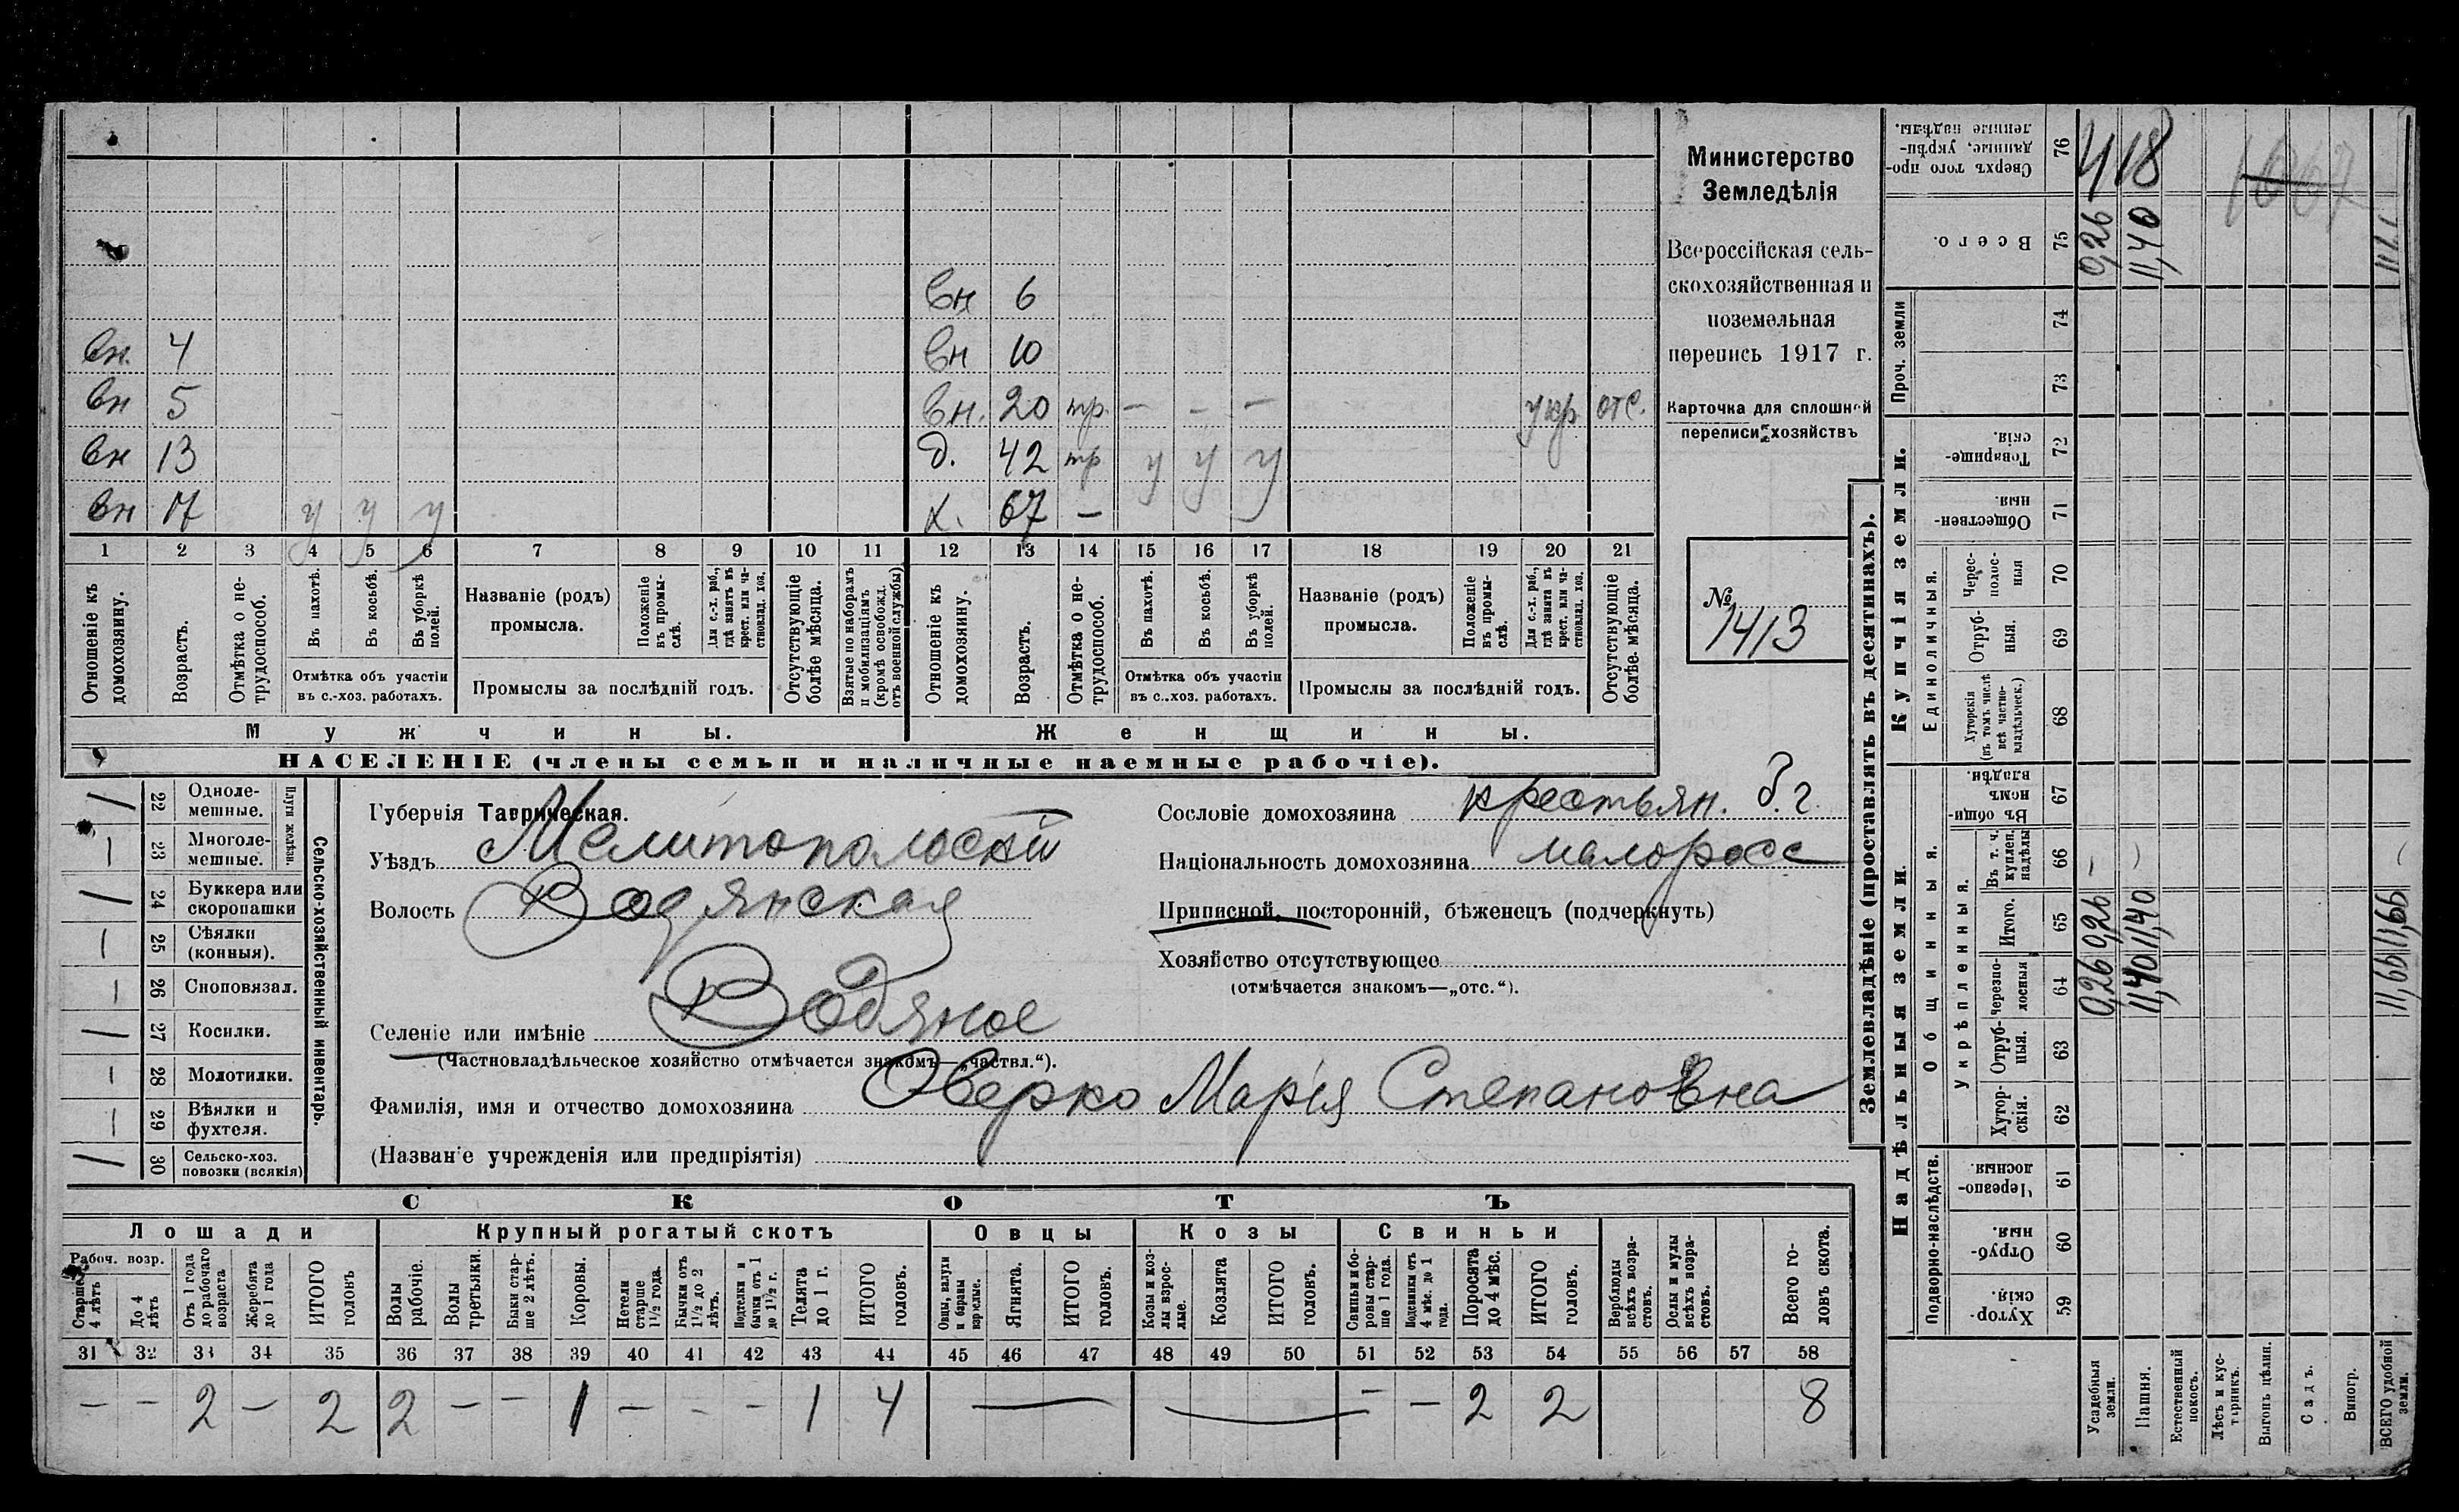 вн 6
вн. 4 вн 10
вн 5 вн. 20 тр. — - — укр отс.
вн 13 д. 42 тр у у у
вн 17 у у у х. 67 —
1 2 3 4 5 6 7 8 9 10 11 12 13 14 15 16 17 18 19 20 21
Отношеніе къ домохозяину.
Возрастъ.
Отмѣтка о нетрудоспособ.
Въ пахотѣ.
Въ косьбѣ.
Въ уборкѣ полей.
Отмѣтка объ участіи
въ с.-хоз. работахъ.
Названіе (родъ)
промысла.
Положеніе въ промыслѣ.
Для с.-х. раб., гдѣ занятъ въ крест. или частновлад. хоз.
Промыслы за послѣдній годъ.
Отсутствующіе болѣе мѣсяца.
Взятые по наборамъ и мобилизаціямъ (кромѣ освобожд. отъ военной службы)
Отношеніе къ домохозяину.
Возрастъ.
Отмѣтка о нетрудоспособ.
Въ пахотѣ.
Въ косьбѣ.
Въ уборкѣ полей.
Отмѣтка объ участіи
въ с.-хоз. работахъ.
Названіе (родъ)
промысла.
Положеніе въ промыслѣ.
Для с.-х. раб., гдѣ занята въ крест. или частновлад. хоз.
Промыслы за послѣдній годъ.
Отсутствующіе болѣе мѣсяца.
Мужчины. Женщины.
НАСЕЛЕНІЕ (члены семьи и наличные наемные рабочіе).
Министерство
Земледѣлія
Всероссійская сель-
скохозяйственная и
поземельная
перепись 1917 г.
Карточка для сплошной
переписи хозяйствъ
№
1413
Сельско-хозяйственный инвентарь.
Плуги желѣзн.
22 Однолемешные.
23 Многолемешные.
24 Буккера или скоропашки
25 Сѣялки (конныя).
26 Сноповязал.
27 Косилки.
28 Молотилки.
29 Вѣялки и фухтеля.
30 Сельско-хоз. повозки (всякія)
Губернія Таврическая.
Уѣздъ Мелитопольскій
Волость Водянская
Селеніе или имѣніе Водяное
(Частновладѣльческое хозяйство отмѣчается знакомъ—„частвл.“).
Фамилія, имя и отчество домохозяина Оверко Марія Степановна
(Названіе учрежденія или предпріятія)
Сословіе домохозяина крестьян. б. г.
Національность домохозяина малоросс
Приписной, посторонній, бѣженецъ (подчеркнуть)
Хозяйство отсутствующее
(отмѣчается знакомъ—„отс.“).
СКОТЪ
Лошади Крупный рогатый скотъ Овцы Козы Свиньи
Рабоч. возр.
Старше 4 лѣтъ
До 4 лѣтъ
Отъ 1 года до рабочаго возраста
Жеребята до 1 года
ИТОГО головъ
Волы рабочіе.
Волы третьяки.
Быки старше 2 лѣтъ.
Коровы.
Нетели старше 1½ года.
Бычки отъ 1½ до 2 лѣтъ.
Подтелки и бычки отъ 1 до 1½ г.
Телята до 1 г.
ИТОГО головъ.
Овцы, валухи и бараны взрослые.
Ягнята.
ИТОГО головъ.
Козы и козлы взрослые.
Козлята
ИТОГО головъ.
Свиньи и боровы старше 1 года.
Подсвинки отъ 4 мѣс. до 1 года.
Поросята до 4 мѣс.
ИТОГО головъ.
Верблюды всѣхъ возрастовъ.
Ослы и мулы всѣхъ возрастовъ.
Всего головъ скота.
31 32 33 34 35 36 37 38 39 40 41 42 43 44 45 46 47 48 49 50 51 52 53 54 55 56 57 58
— — 2 — 2 2 — — 1 — - — 1 4 — — — — 2 2 8
Землевладѣніе (проставлять въ десятинахъ).
Надѣльныя земли. Купчія земли. Проч. земли
Подворно-наслѣдств. Общинныя. Укрѣпленныя. Единоличныя.
59 Хуторскія.
60 Отрубныя.
61 Черезполосныя.
62 Хуторскія.
63 Отрубныя.
64 Черезполосныя 0,26 11,40 11,66
65 Итого. 0,26 11,40 11,66
66 Въ т. ч. куплен. надѣлы — — —
67 Въ общинномъ владѣн.
68 Хуторскія (въ томъ числѣ всѣ частновладѣльческ.)
69 Отрубныя.
70 Чересполосныя
71 Общественныя.
72 Товарищескія.
73
74
75 Всего. 0,26 11,40
76 Сверхъ того проданные, укрѣпленные надѣлы.
418
1067
Усадебныя земли.
Пашня.
Естественный покосъ.
Лѣсъ и кустарникъ.
Выгонъ цѣлин.
Садъ.
Виногр.
ВСЕГО удобной земли.